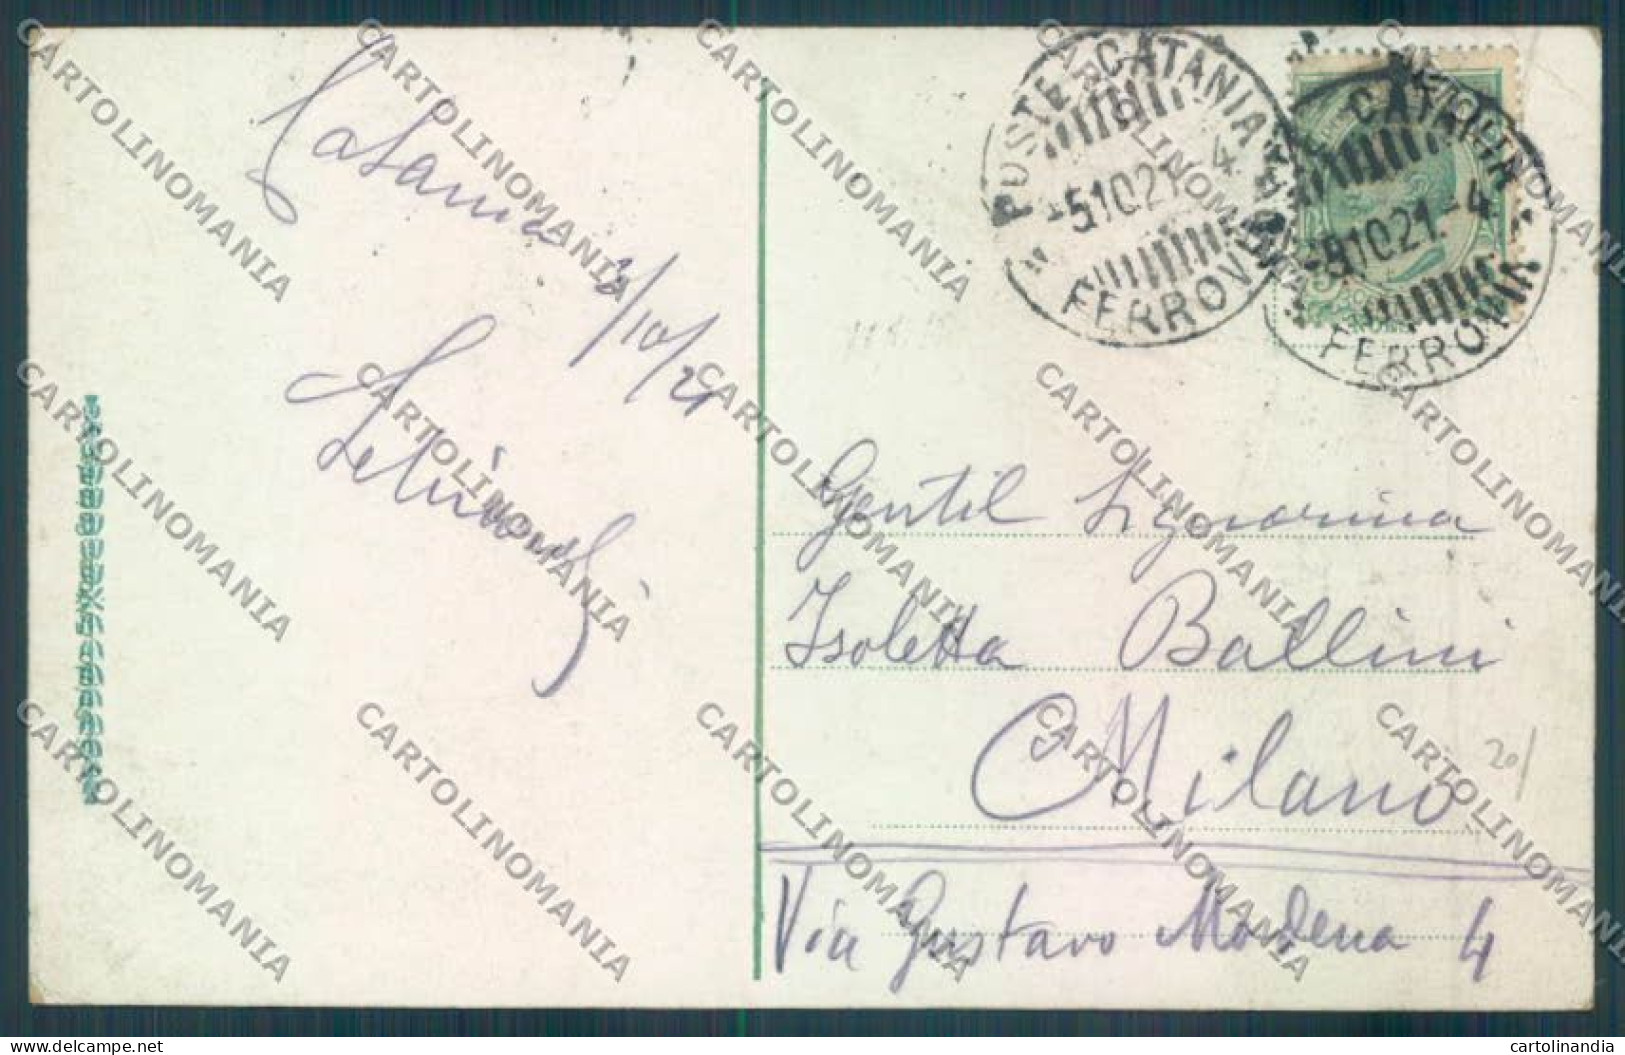 Catania 3/10/21
POSTE CATANIA
-5 10 21 - 4
FERROVIA
CATANIA
-5 10 21 - 4
FERROVIA
Gentil Signorina
Isoletta Ballini
Milano
Via Gustavo Modena 4
20/
CARTOLINOMANIA
delcampe.net
cartolinandia